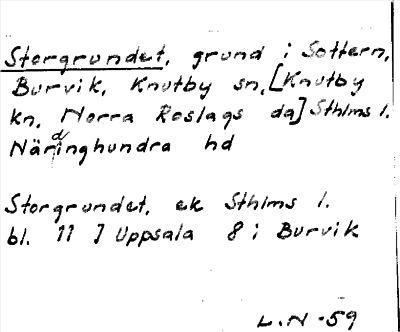 Storgrundet, grund i Sottern,
Burvik, Knutby sn, [Knutby
kn, Norra Roslags da] Sthlms l.
Närdinghundra hd
Storgrundet, ek Sthlms l.
bl. 11 ] Uppsala 8 i Burvik
L.N -59